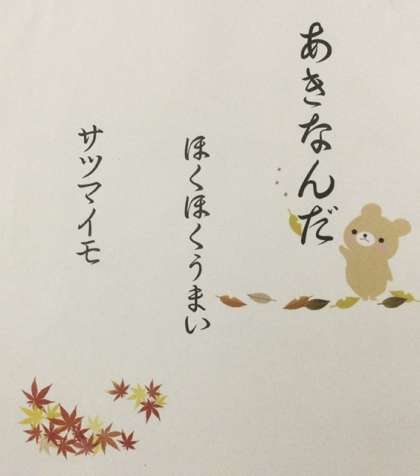 あきなんだ
ほくほくうまい
サツマイモ